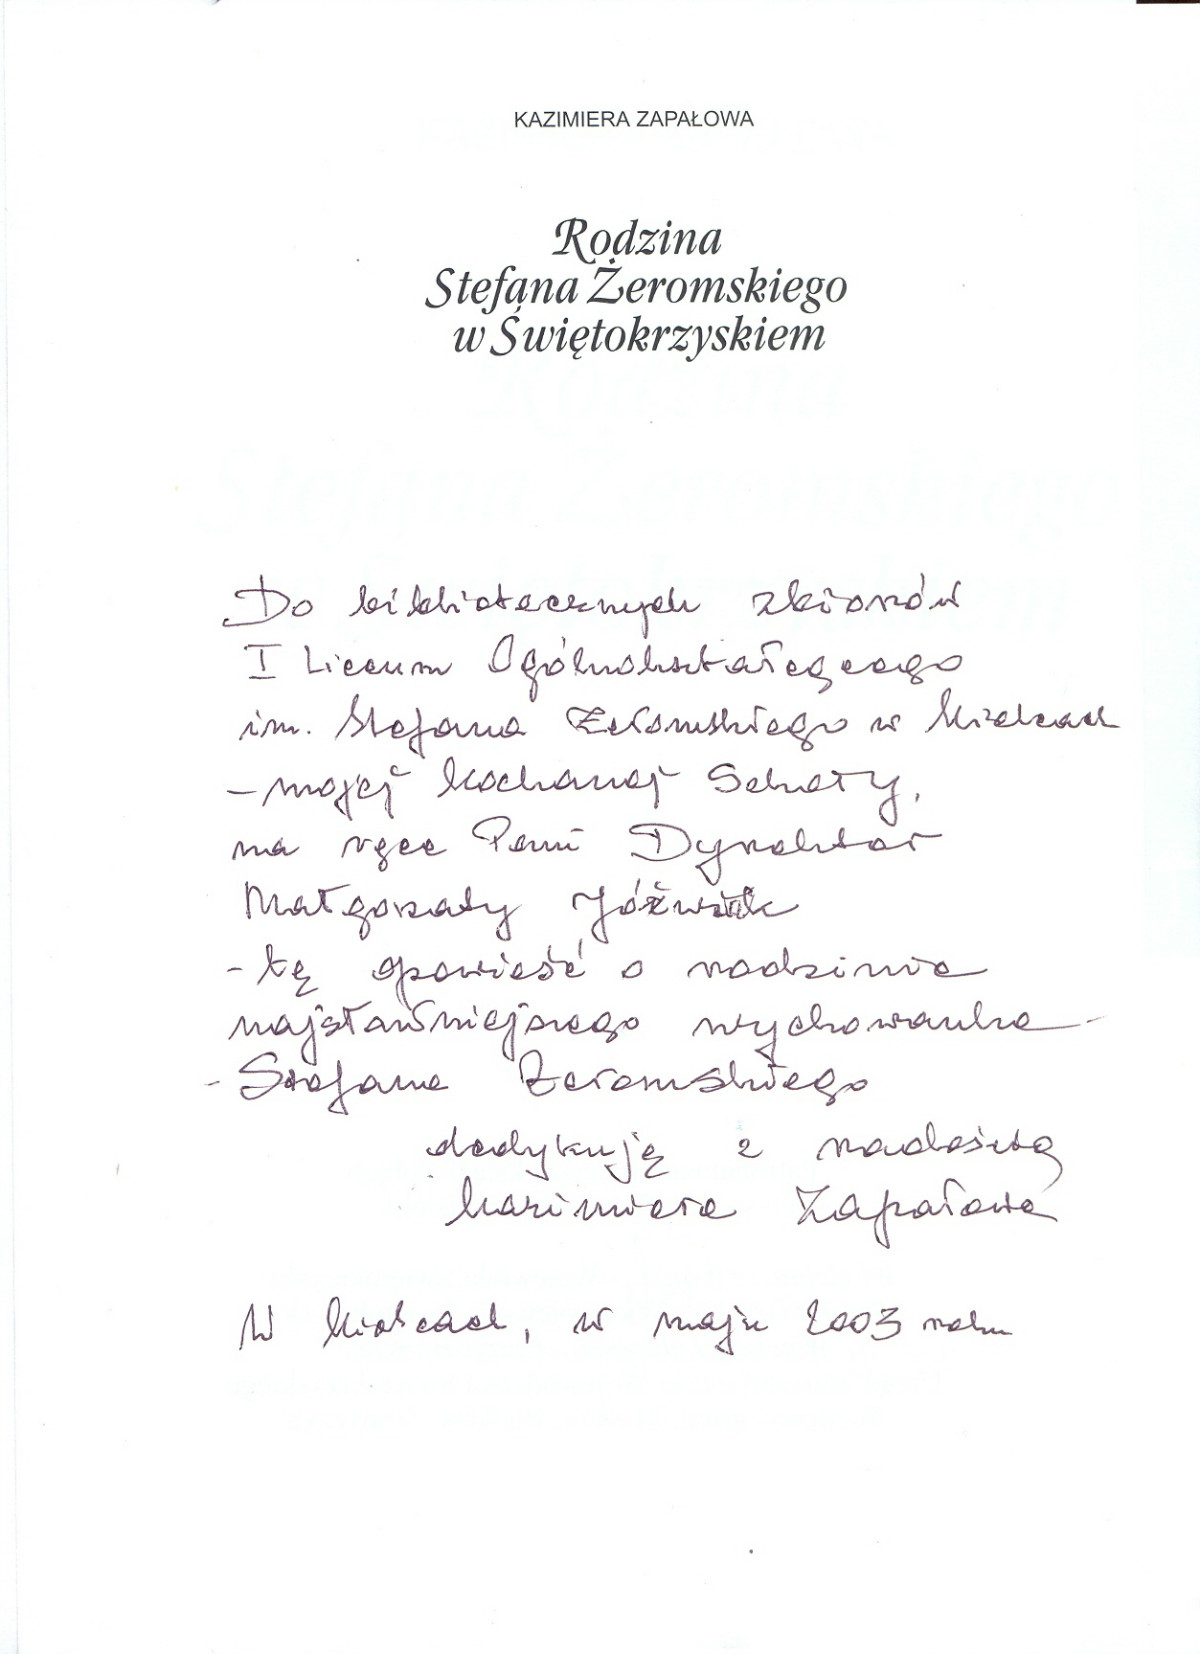 KAZIMIERA ZAPAŁOWA
Rodzina
Stefana Żeromskiego
w Świętokrzyskiem
Do bibliotecznych zbiorów
I Liceum Ogólnokształcącego
im. Stefana Żeromskiego w Kielcach
- mojej kochanej Szkoły,
na ręce Pani Dyrektor
Małgorzaty Jóźwik
- tę opowieść o rodzinie
najsławniejszego wychowanka -
- Stefana Żeromskiego
dedykuję z radością
Kazimiera Zapałowa
W Kielcach, w maju 2003 roku